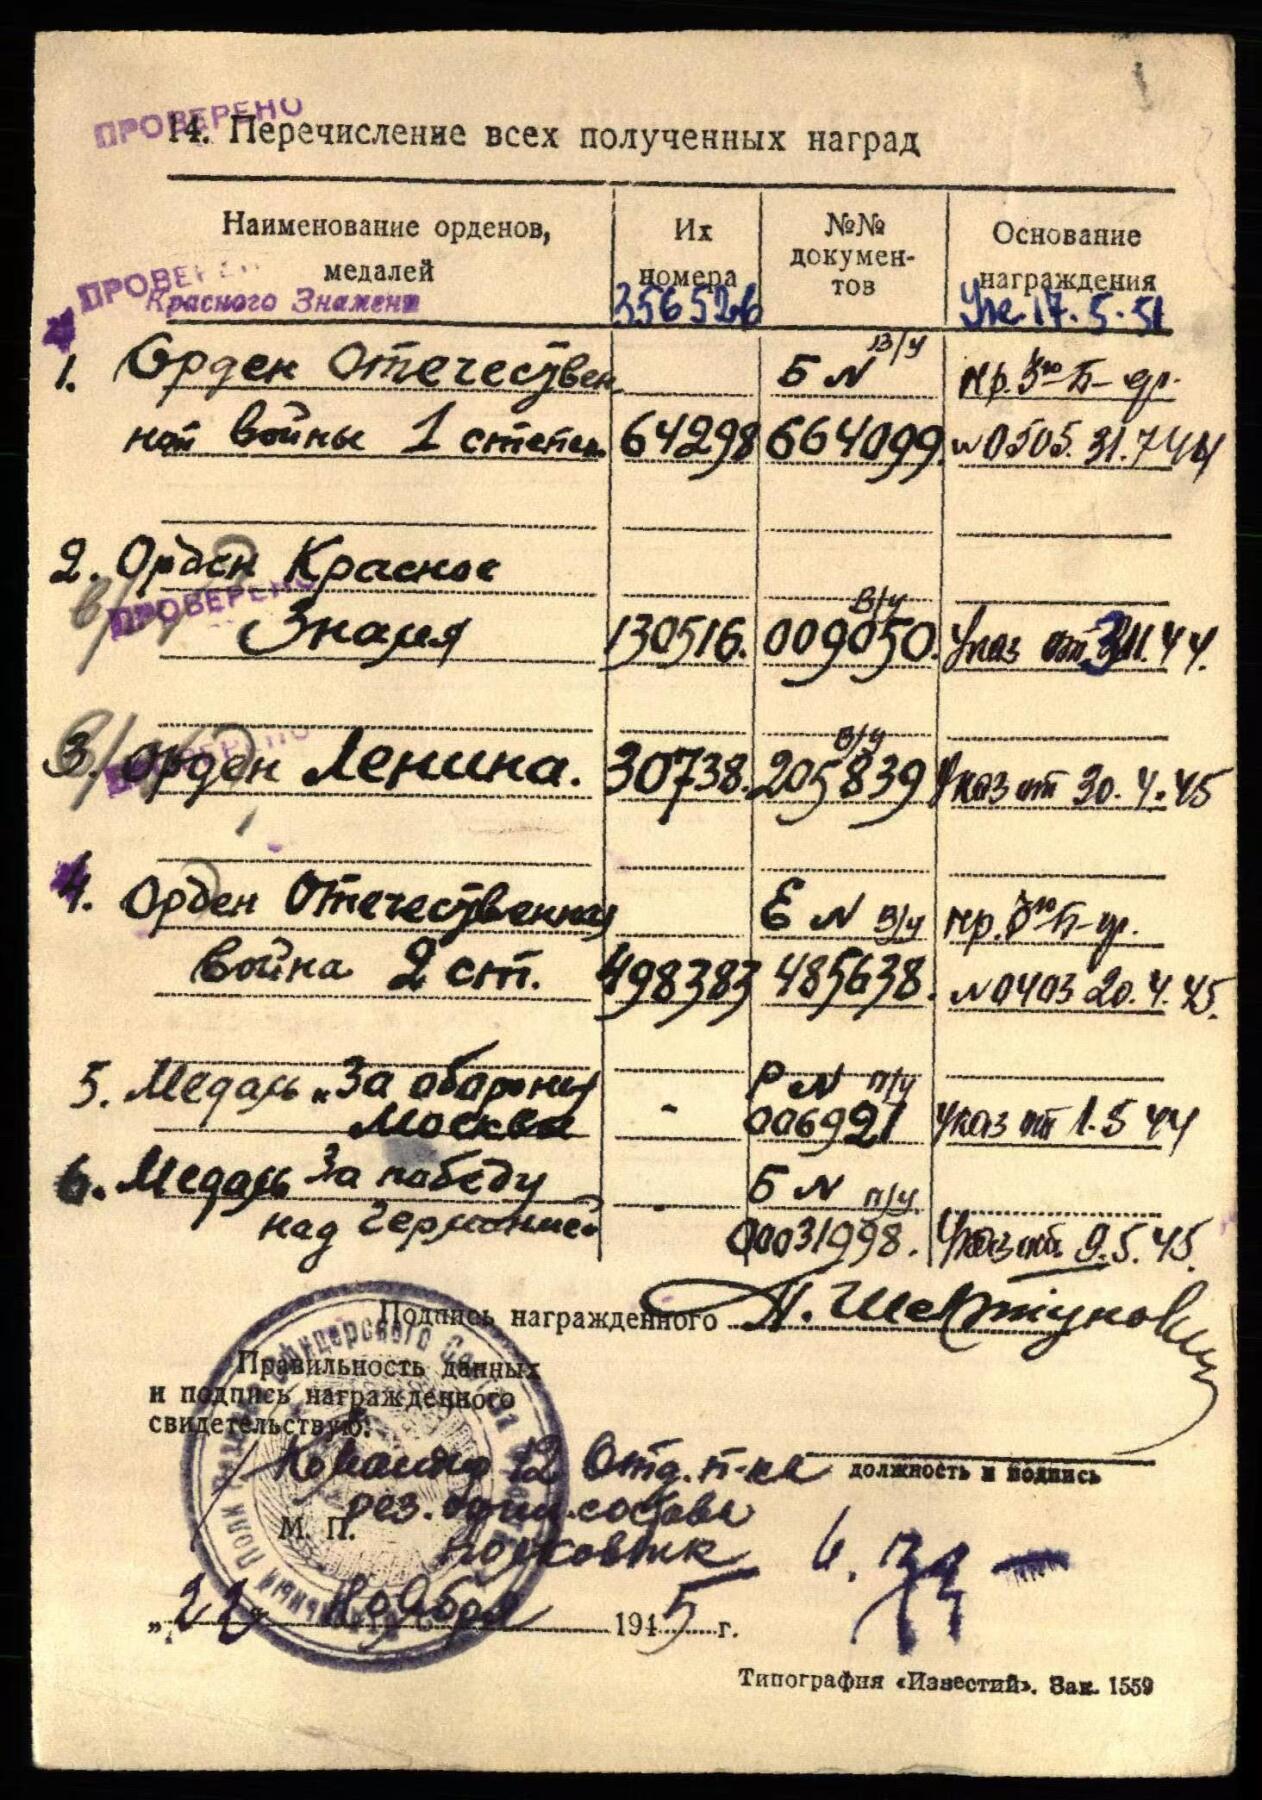 ПРОВЕРЕНО
14. Перечисление всех полученных наград
Наименование орденов, медалей
Их номера
№№ документов
Основание награждения
ПРОВЕРЕНО
Красного Знамени 356526 Ук. 17.5.51
1. Орден Отечествен Б N В/у пр. 3го Б-фр.
ной войны 1 степен. 64298 664099. N 0505. 31.7 44
2. Орден Красное
ПРОВЕРЕНО
Знамя 130516. В/у 009050. Указ от 3.11.44.
3. Орден Ленина. 30738. В/у 205839 Указ от 30.4.45
ПРОВЕРЕНО
4. Орден Отечественная Е N В/у пр. 3го Б-фр.
война 2 ст. 498383 485638. N 0403 20.4.45.
5. Медаль „За оборону Р N П/у
Москвы - 006921 Указ от 1.5 44
6. Медаль За победу Б N П/у
над Германией 0031998. Указ от 9.5.45.
Подпись награжденного
Правильность данных
и подпись награжденного
свидетельствую:
Командир 12 Отд. п-ка
должность и подпись
рез. офиц. состава
М. П.
полковник
„22" Ноября 1945 г.
Типография «Известий». Зак. 1559